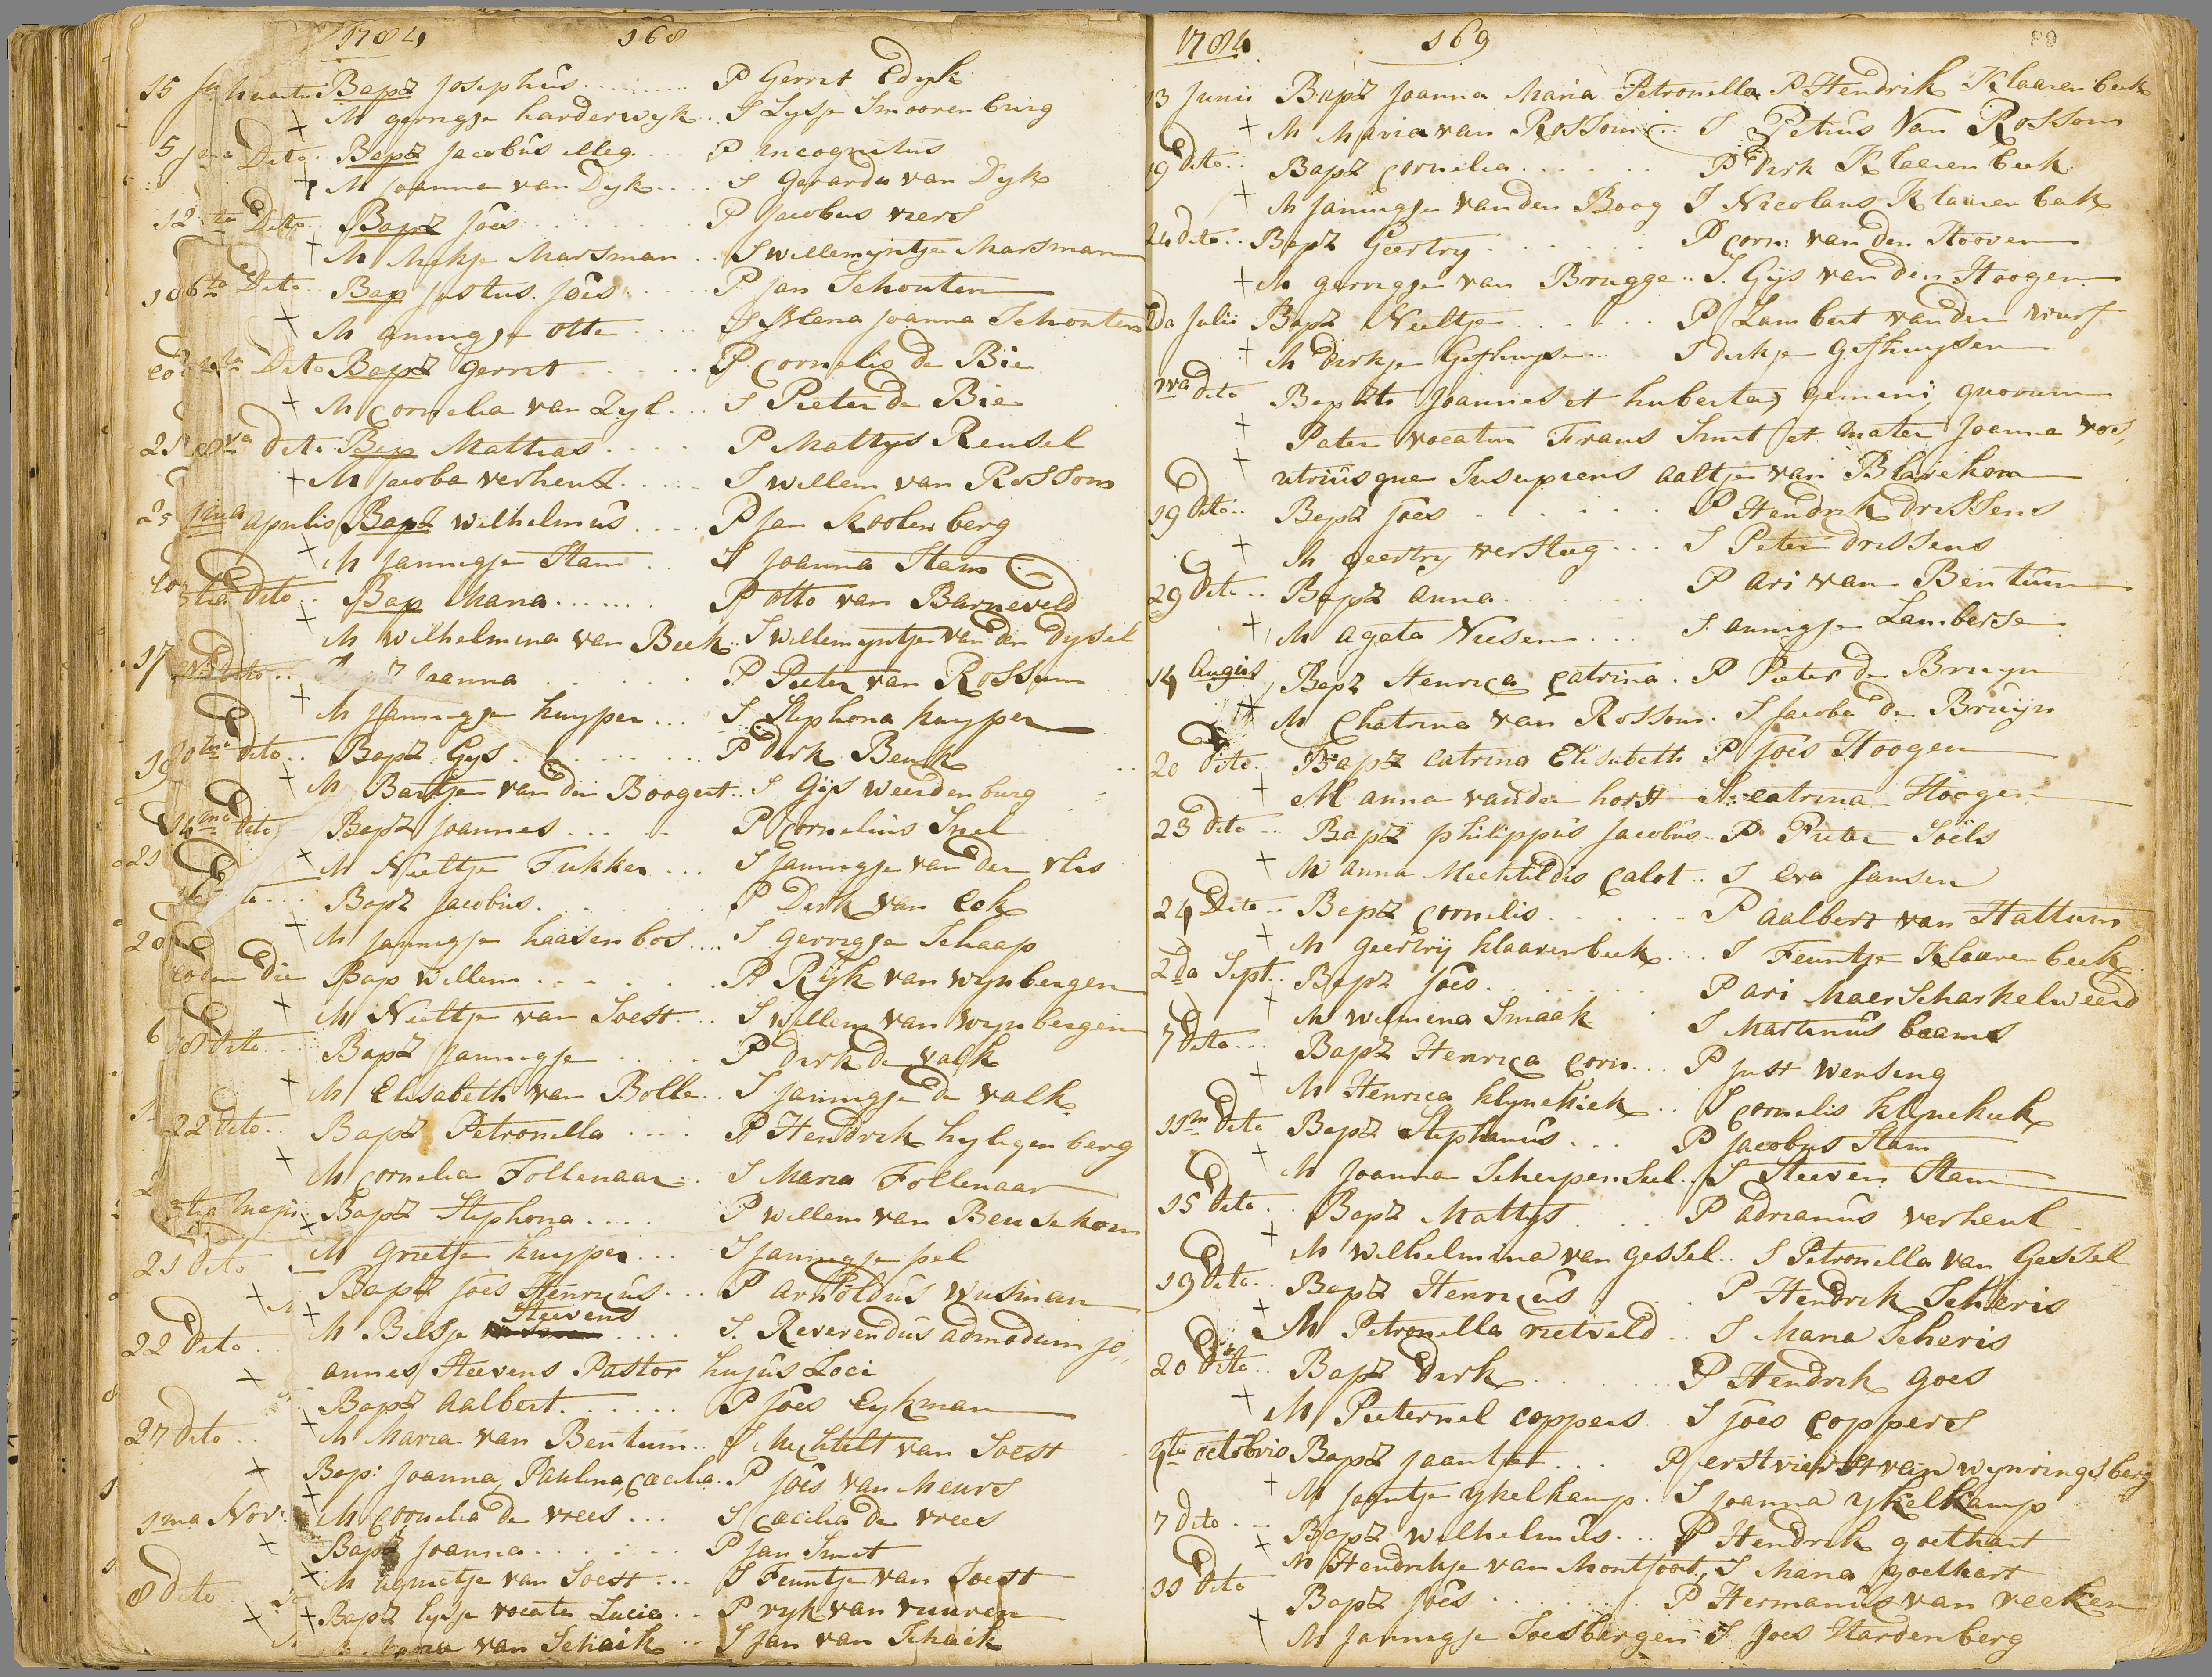 1784 168
Bapt Josephus P Gerret Edyk
M gerrigje harderwyk S Lysje Smoorenburg
Dito Bapt Jacobus illeg. P incognitus
M Joanna van Dyk S Gerarda van Dyk
Dito Bapt Joes P Jacobus viers
M Marsman S willemyntje Marsman
Dito Bap Justus Joes P Jan Schouten
M annigje otte S Joanna Schouten
Dito Bapt Gerret P Cornelis de Bie
M Cornelia van Zyl S Pieter de Bie
dito Bap Mattias P Mattys Rensel
M Jacoba verheul S willem van Rossom
aprilis Bapt wilhelmus P Jan Koolenberg
M Jannigje Stam S Joanna Stam
3tia dito Bap Maria P otto van Barneveld
M wilhelmina van Beek S willemyntje van den dysel
dito Joanna P Pieter van Rossum
M Jannigje kuyper S Stephona kuyper
dito Bapt Gys P Dirk Benk
M Bartje van den Boogert S Gijs weerdenburg
dito Bapt Joannes P Cornelius Snel
M Neeltje Fukker S Jannigje van der vlis
Bapt Jacobus P Derk van Eck
M Jannigje haasenbos S gerrigje Schaap
eodem die Bap willem P Rijk van wynbergen
M Neeltje van Soest S willem van wynbergen
18 dito Bapt Jannigje P dirk de valk
M Elisabeth van Bolle S Jannigje de valk
22 dito Bapt Petronella P Hendrik hylegenberg
M Cornelia Follenaar S Maria Follenaar
3tia Maji Bapt Stephona P willem van Beusekom
21 dito M Grietje kuyper S Jannigje pel
Bapt Joes Henricus P Arnoldus Wusman
22 dito M Beltje Steevens S. Reverendus admodum jo,,
annes Steevens Pastor hujus Loci
Bapt Aalbert P Joes Eykman
27 dito M Maria van Bentum S Mechtelt van Soest
Bap: Joanna Paulina Cæcilia P Joes van Meurs
1ma Nov: M Cornelia de vrees S Cæcilia de vrees
Bapt Joanna P Jan Smet
M van Soest S Feuntje van Soest
8 dito Bapt lysje vocata Lucia P ryk van vuuren
Maria van Schaik S Jan van Schaik
1784 169 89
13 Junii Bapt Joanna Maria Petronella P Hendrik Klaarenbeek
M Maria van Rossom S Petrus Van Rossom
19 dito Bapt Cornelia P Dirk Klaarenbeek
M Jannigje van den Boog S Nicolaus Klaarenbeek
24 dito Bapt Geertry P Corn: van den Hooven
M gerrigje van Brugge S. Gijs van den Hoogen
2da Julii Bapt Neeltje P Lambert van der
M Dirkje S dirkje
dito Baptti Joannes et huberta, gemeni quorum
Pater vocatur Frans Smit et mater Joanna vos,
utriusque Susupiens aaltje van Blavekom
19 dito Bapt Joes P Hendrik drissens
M geertry versteeg S Peter drissens
29 dito Bapt Anna P Ari van Bentum
M Agata Neesen S. Annigje Lambertse
14 Augus Bapt Henrica Catrina P Pieter de Bruyn
M Chatrina van Rossom S Jacoba de Bruijn
20 dito Bapt Catrina Elisabeth P Joes Hoogen
M Anna van der horst S: Catrina Hoogen
23 dito Bapt philippus Jacobus P Pieter Soels
M Anna Mechtildis Calot S Eva Jansen
24 dito Bapt Cornelis P Aalbert van Hattum
M Geertrij klaarenbeek S Feuntje Klaarenbeek
2da Sept. Bapt Joes P Ari Maer Scharkelweerd
M wilmina Smaak S Martinus baams
7 dito Bapt Henrica Corn P Just wensing
M Henrica klynekiek S Cornelis klynekiek
11m dito Bapt Stephanus P Jacobus Stam
M Joanna Scherpenseel S Steeven Stam
15 dito Bapt Mattys P Adrianus verheul
M wilhelmina van gessel S Petronella van Gessel
19 dito Bapt Henricus P Hendrik Scheris
M Petronella rietveld S Maria Scheris
20 dito Bapt Dirk P Hendrik Goes
M Pieternel Coppers S Joes Coppers
4ta octobris Bapt Jaantjet P van wynringsberg
M Jaantje ykelkamp S Joanna ykelkamp
7 dito Bapt wilhelmus P Hendrik goethart
M Hendrikje van Montfoort, S Maria goethart
11 dito Bapt Joes P Hermanus van veeken
M Jannigje Soesbergen S Joes Hardenberg